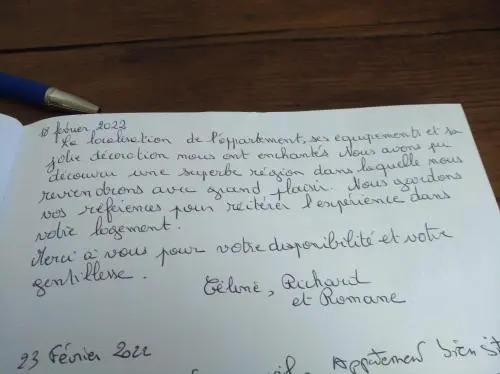 18 février 2022
La localisation de l'appartement, ses équipements et sa
jolie décoration nous ont enchantés. Nous avons pu
découvrir une superbe région dans laquelle nous
reviendrons avec grand plaisir. Nous gardons
vos références pour réitérer l'expérience dans
votre logement.
Merci à vous pour votre disponibilité et votre
gentillesse.
Céline, Richard
et Romane
23 Février 2022
Appartement bien